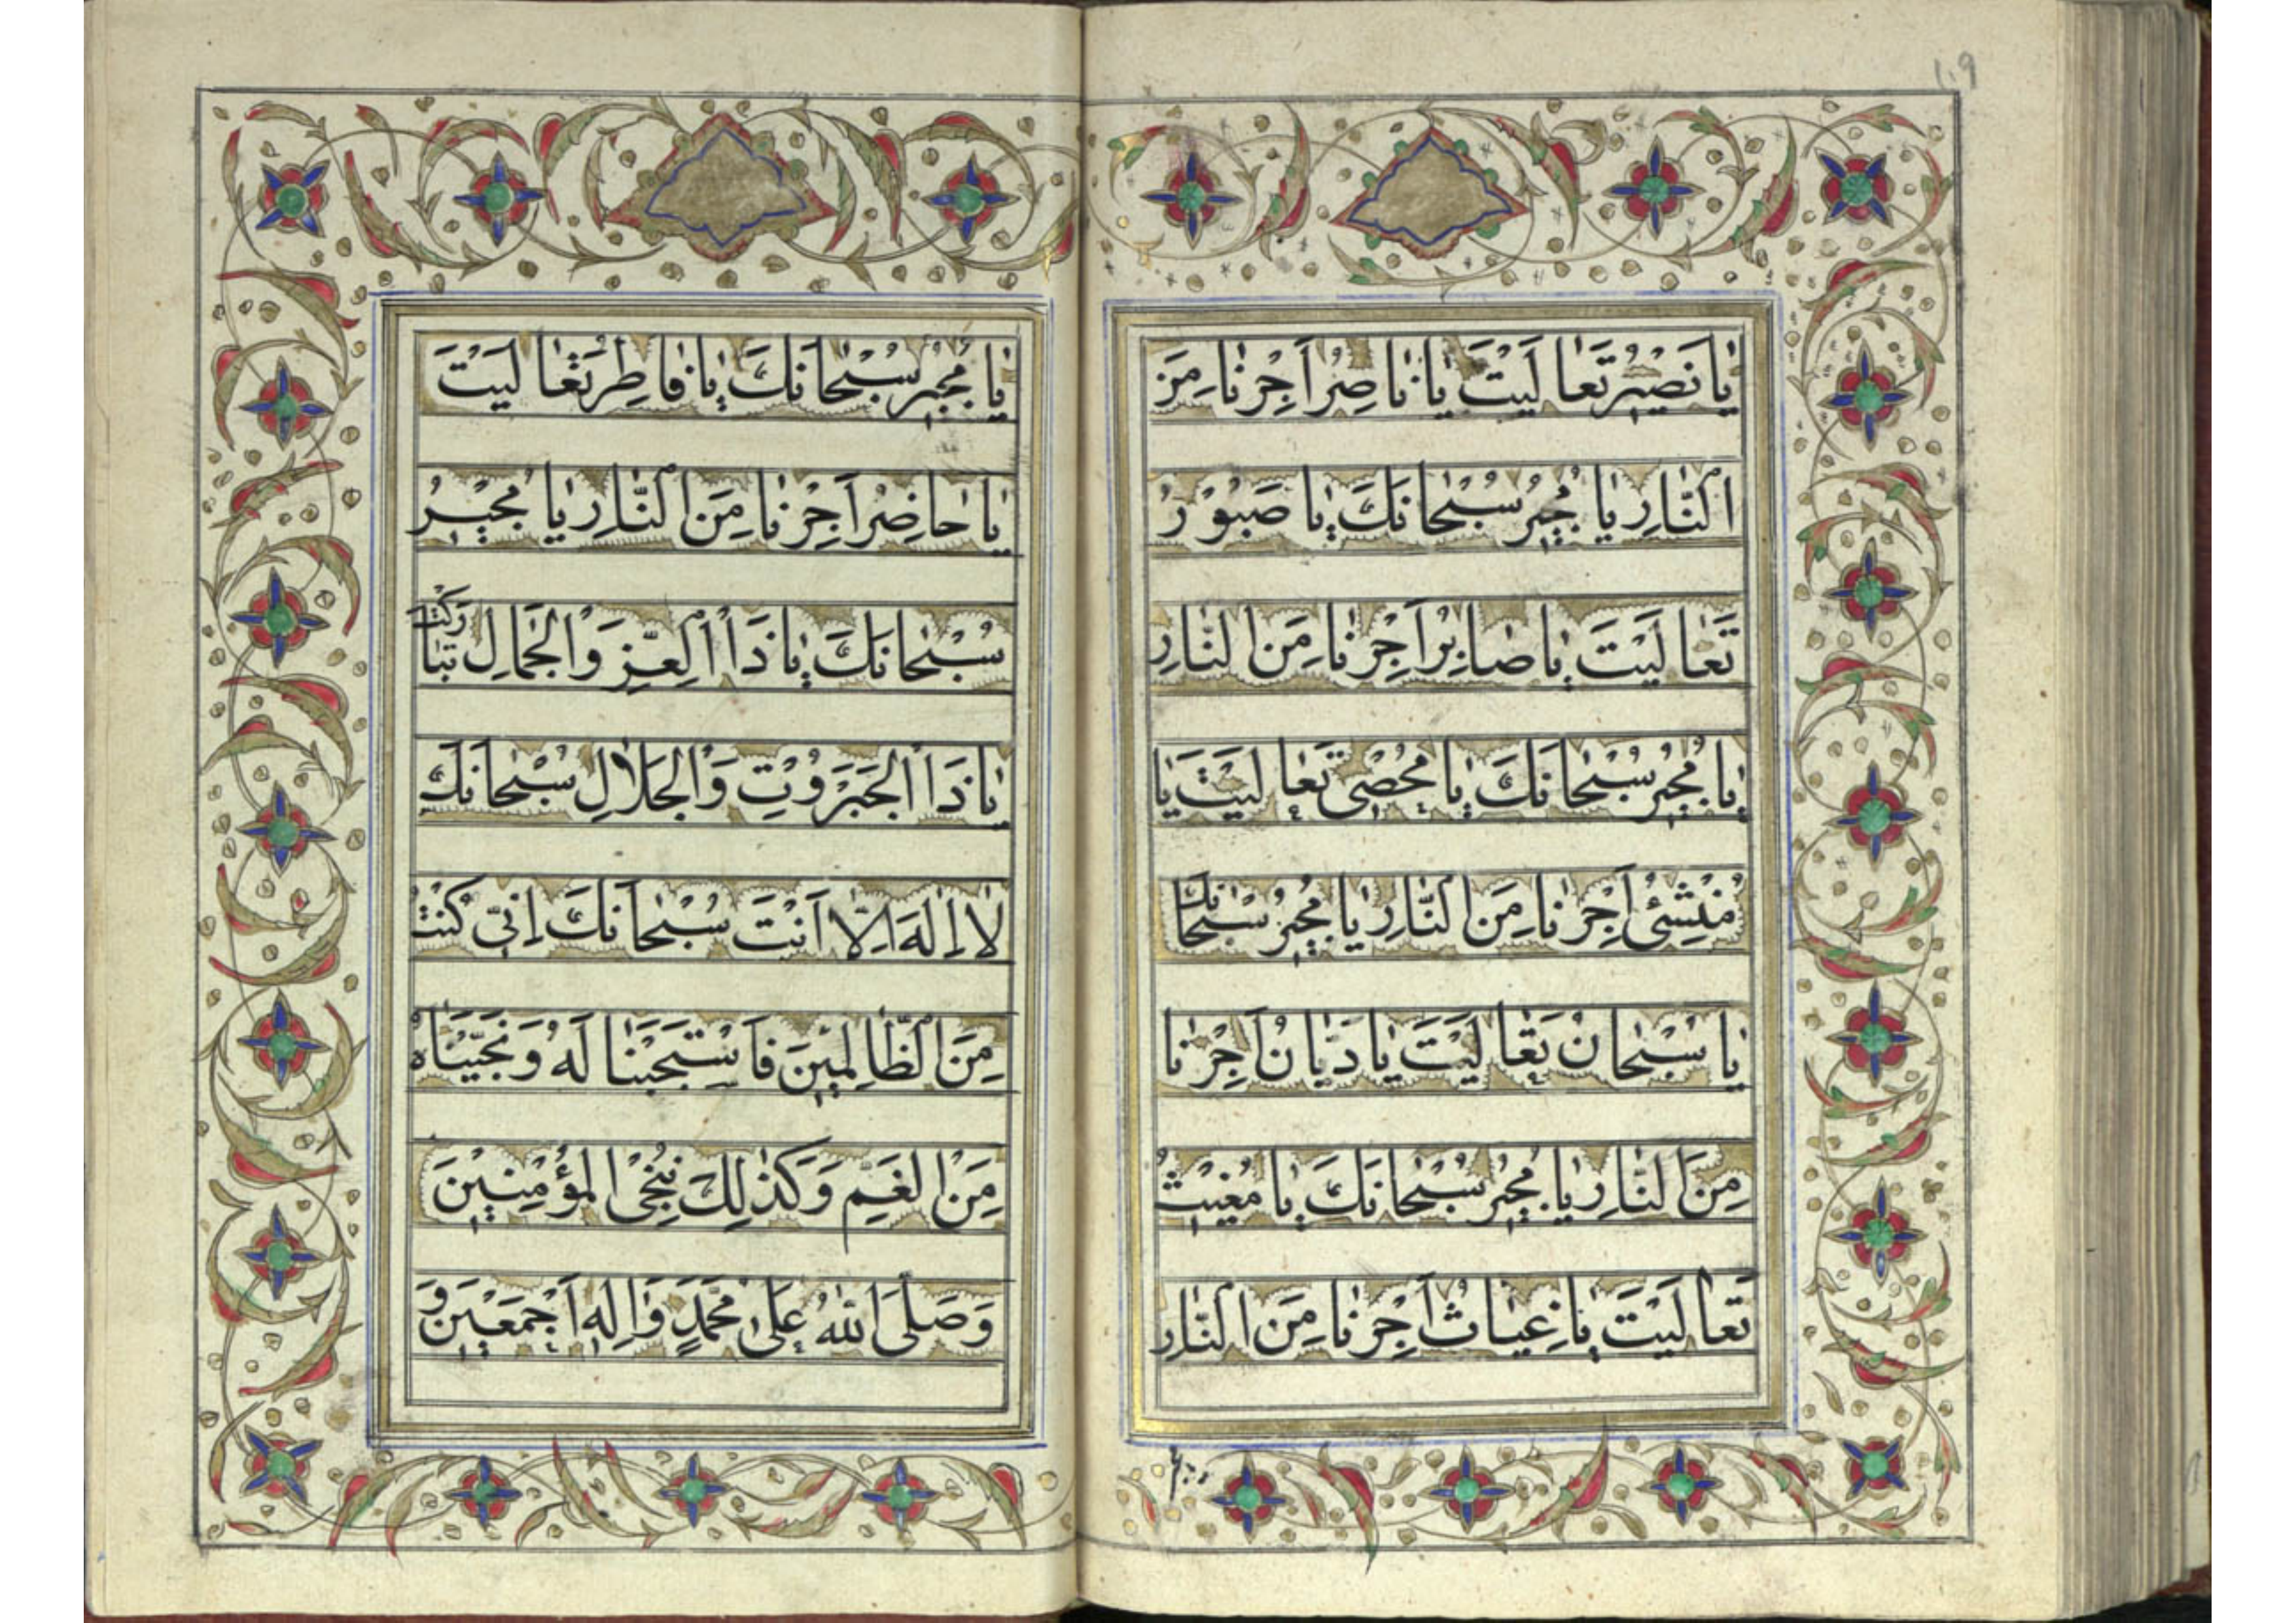 ١٠٩
يٰا نَصيٖرُ تَعٰا لَيْتَ يٰا نٰا صِرُ اَجِرْنٰا مِنَ
النّٰارِ يٰا مُجيٖرُ سُبْحٰانَكَ يٰا صَبُوْرُ
تَعٰا لَيْتَ يٰا صٰابِرُ اَجِرْنٰا مِنَ النّٰارِ
يٰا مُجيٖرُ سُبْحٰانَكَ يٰا مُحْصِى تَعٰا لَيْتَ يٰا
مُنْشِئُ اَجِرْنٰا مِنَ النّٰارِ يٰا مُجيٖرُ سُبْحٰانَكَ
يٰا سُبْحٰانُ تَعٰا لَيْتَ يٰا دَيّٰانُ اَجِرْنٰا
مِنَ النّٰارِ يٰا مُجيٖرُ سُبْحٰانَكَ يٰا مُغيٖثُ
تَعٰا لَيْتَ يٰا غِيٰاثُ اَجِرْنٰا مِنَ النّٰارِ
يٰا مُجيٖرُ سُبْحٰانَكَ يٰا فٰاطِرُ تَعٰا لَيْتَ
يٰا حٰاضِرُ اَجِرْنٰا مِنَ النّٰارِ يٰا مُجيٖرُ
سُبْحٰانَكَ يٰا ذَا الْعِزِّ وَالْجَمٰالِ تَبٰارَكْتَ
يٰا ذَا الْجَبَرُوْتِ وَالْجَلاٰلِ سُبْحٰانَكَ
لاٰ اِلٰهَ اِلاّٰ اَنْتَ سُبْحٰانَكَ اِنّىٖ كُنْتُ
مِنَ الظّٰالِميٖنَ فَاسْتَجَبْنٰا لَهُ وَنَجَّيْنٰاهُ
مِنَ الْغَمِّ وَكَذٰلِكَ نُنْجِى الْمُؤْمِنيٖنَ
وَصَلَّى اللّٰهُ عَلىٰ مُحَمَّدٍ وَاٰلِهٖ اَجْمَعيٖنَ وَ